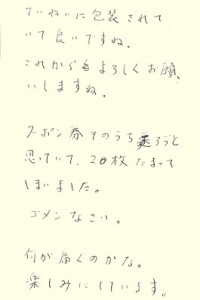 ていねいに包装されて
いて良いですね。
これからもよろしくお願
いしますね。
クーポン券そのうち送ろうと
思っていて、20枚たまって
しまいました。
ゴメンなさい。
何が届くのかな。
楽しみにしています。